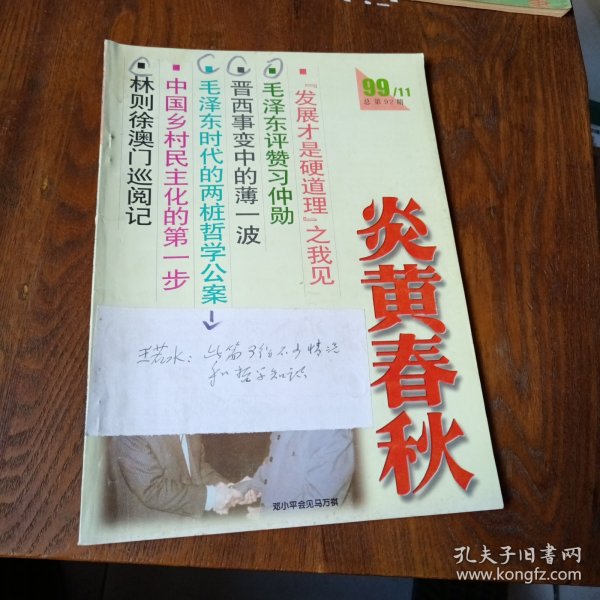 99/11
总第92期
炎黄春秋
▪『发展才是硬道理』之我见
▪毛泽东评赞习仲勋
▪晋西事变中的薄一波
▪毛泽东时代的两桩哲学公案
▪中国乡村民主化的第一步
▪林则徐澳门巡阅记
王若水：此篇了解不少情况
和哲学知识
邓小平会见马万祺
孔夫子旧书网
www.kongfz.com